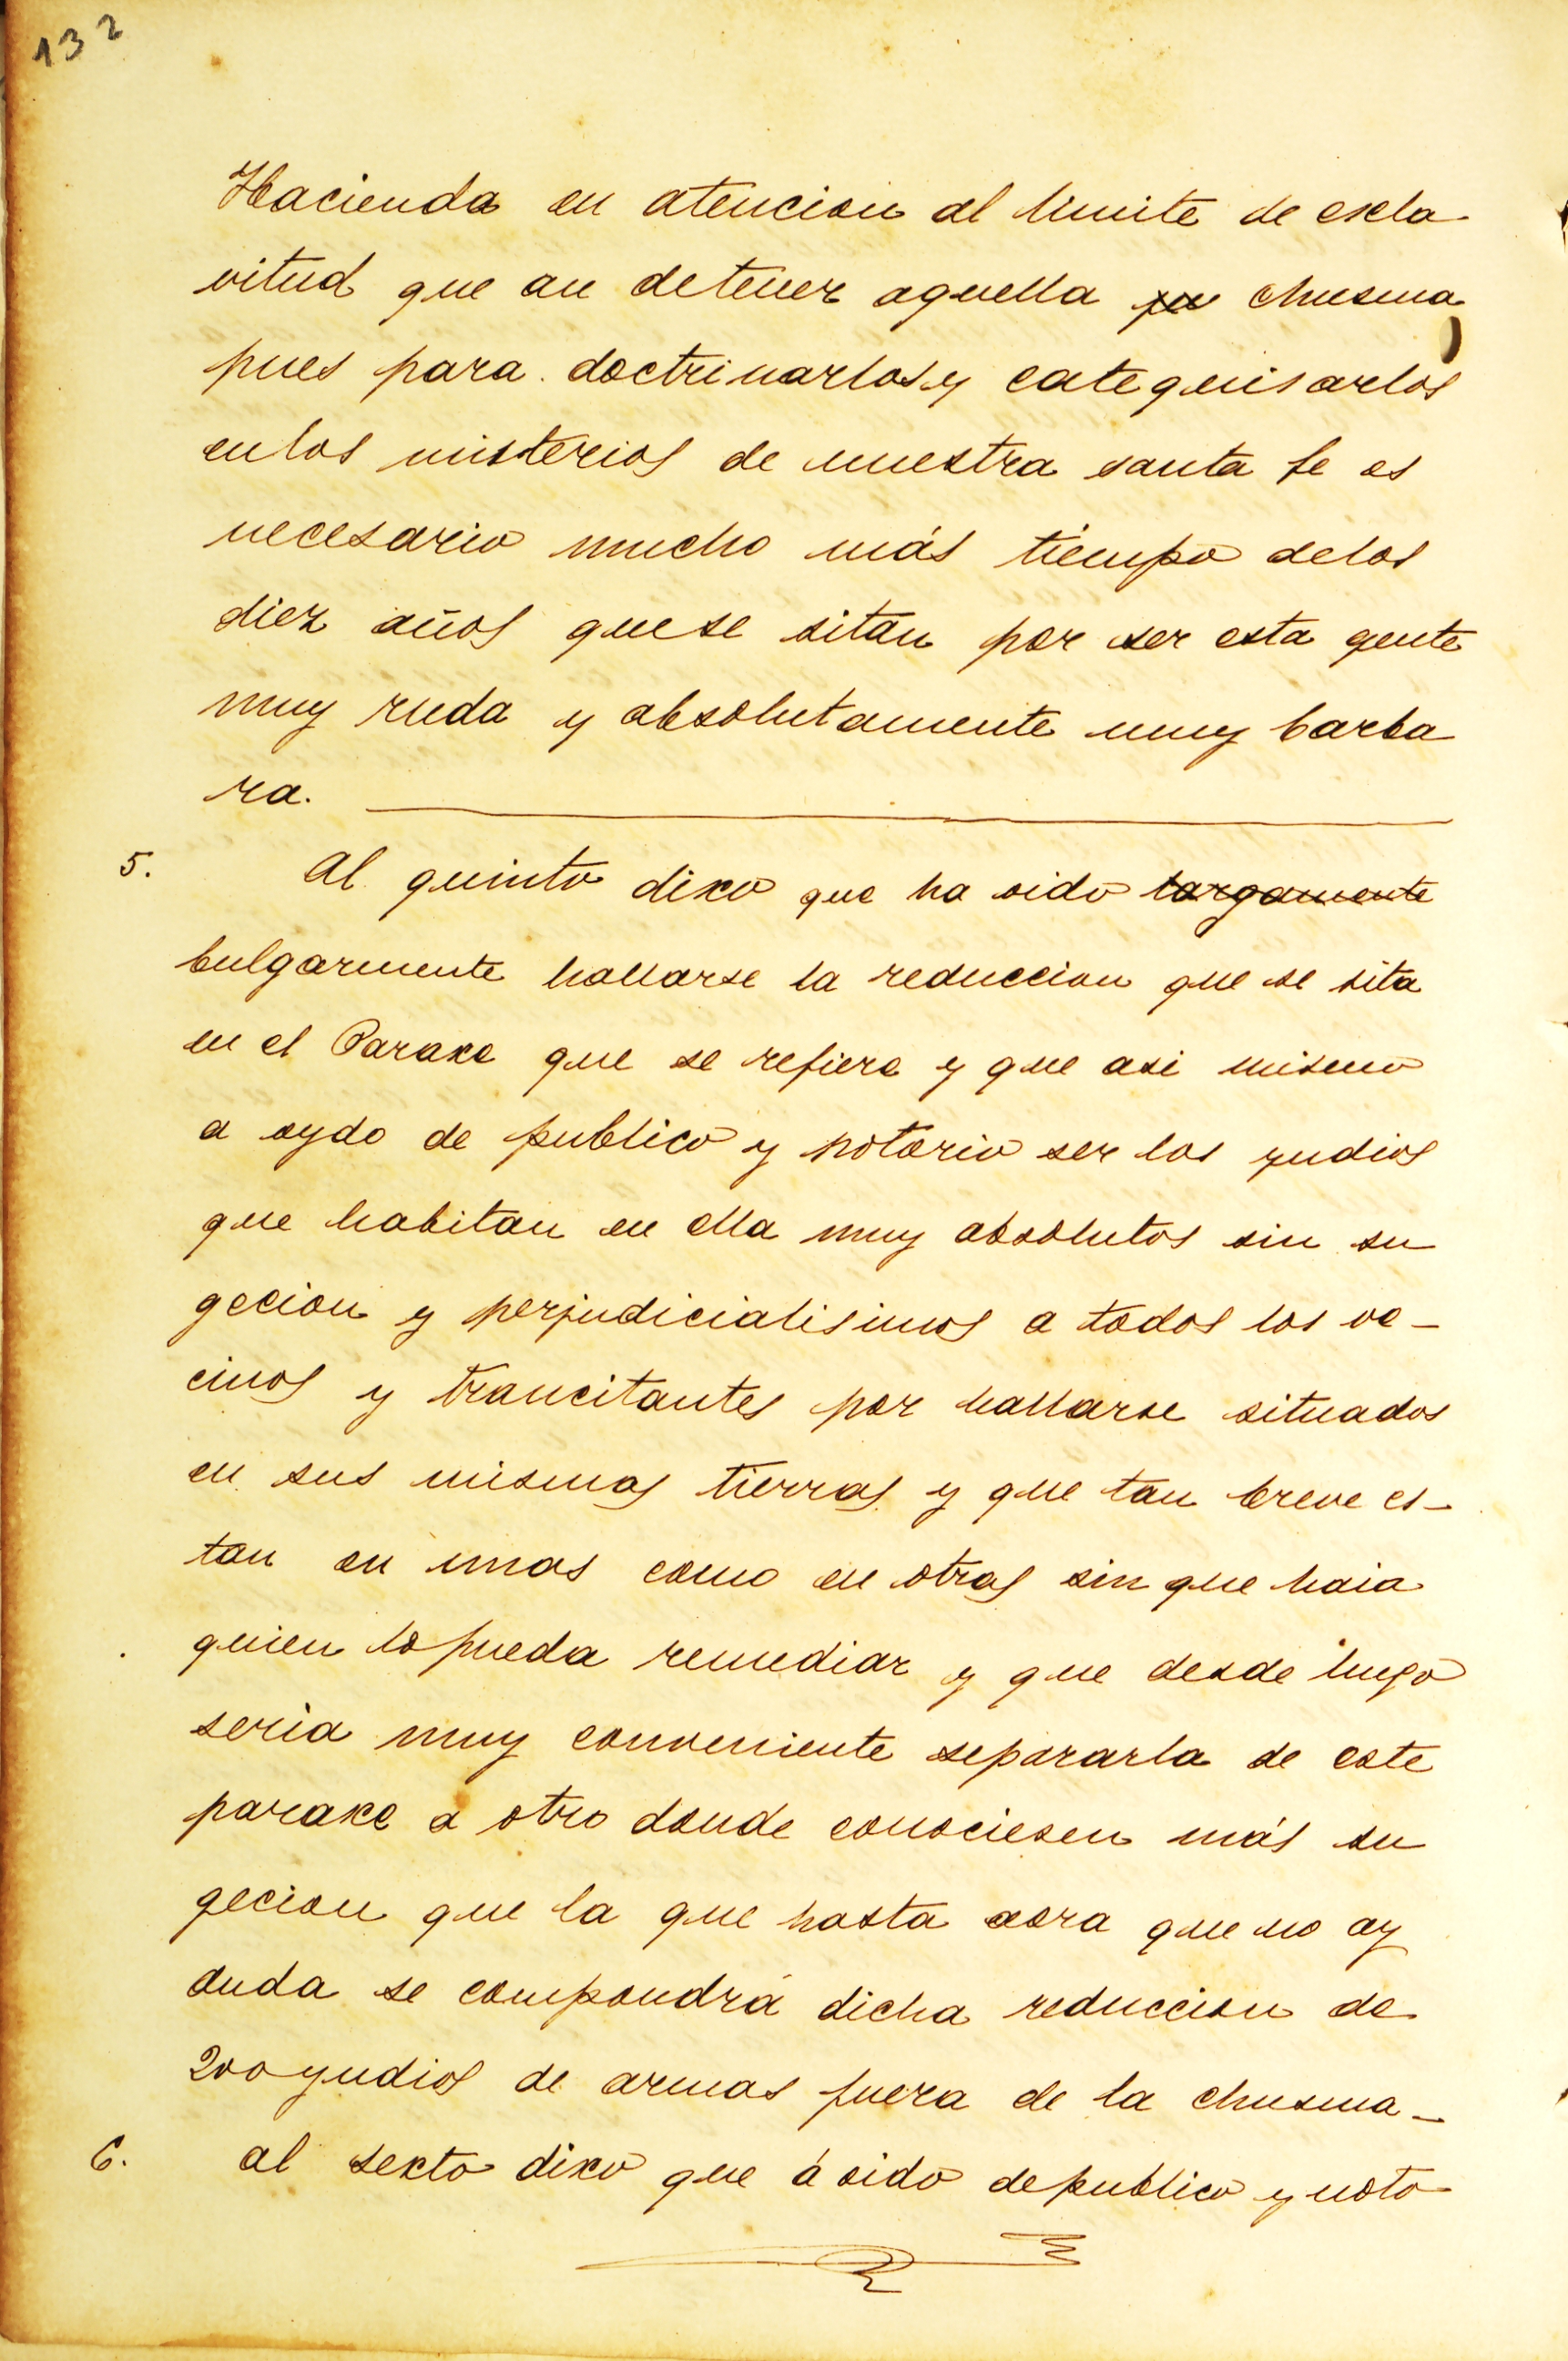 132
Hacienda en atencion al limite de escla
vitud que an detener aquella su chusma
pues para doctrinarlos y catequisarlos
enlos misterios de nuestra santa fe es
necesario mucho más tiempo delos
diez años quese sitan por ser esta gente
muy ruda y absolutamente muy barba
ra.
5. Al quinto dixo que ha oido largamente
bulgarmente hallarse la reduccion que se sita
en el Paraxe que se refiere y que asi mismo
a oydo de publico y notorio ser los yndios
que habitan en ella muy absolutos sin su
gecion y perjudicialisimos a todos los ve-
cinos y trancitantes por hallarse situados
en sus mismas tierras y que tan breve es-
tan en unas como en otras sin que haia
quien lo pueda remediar y que desde luego
seria muy conveniente separarla de este
paraxe a otro donde conociesen más su
gecion que la que hasta aora que no ay
duda se compondrá dicha reduccion de
200 yndios de armas fuera de la chusma-
6. al sexto dixo que á oido depublico y noto